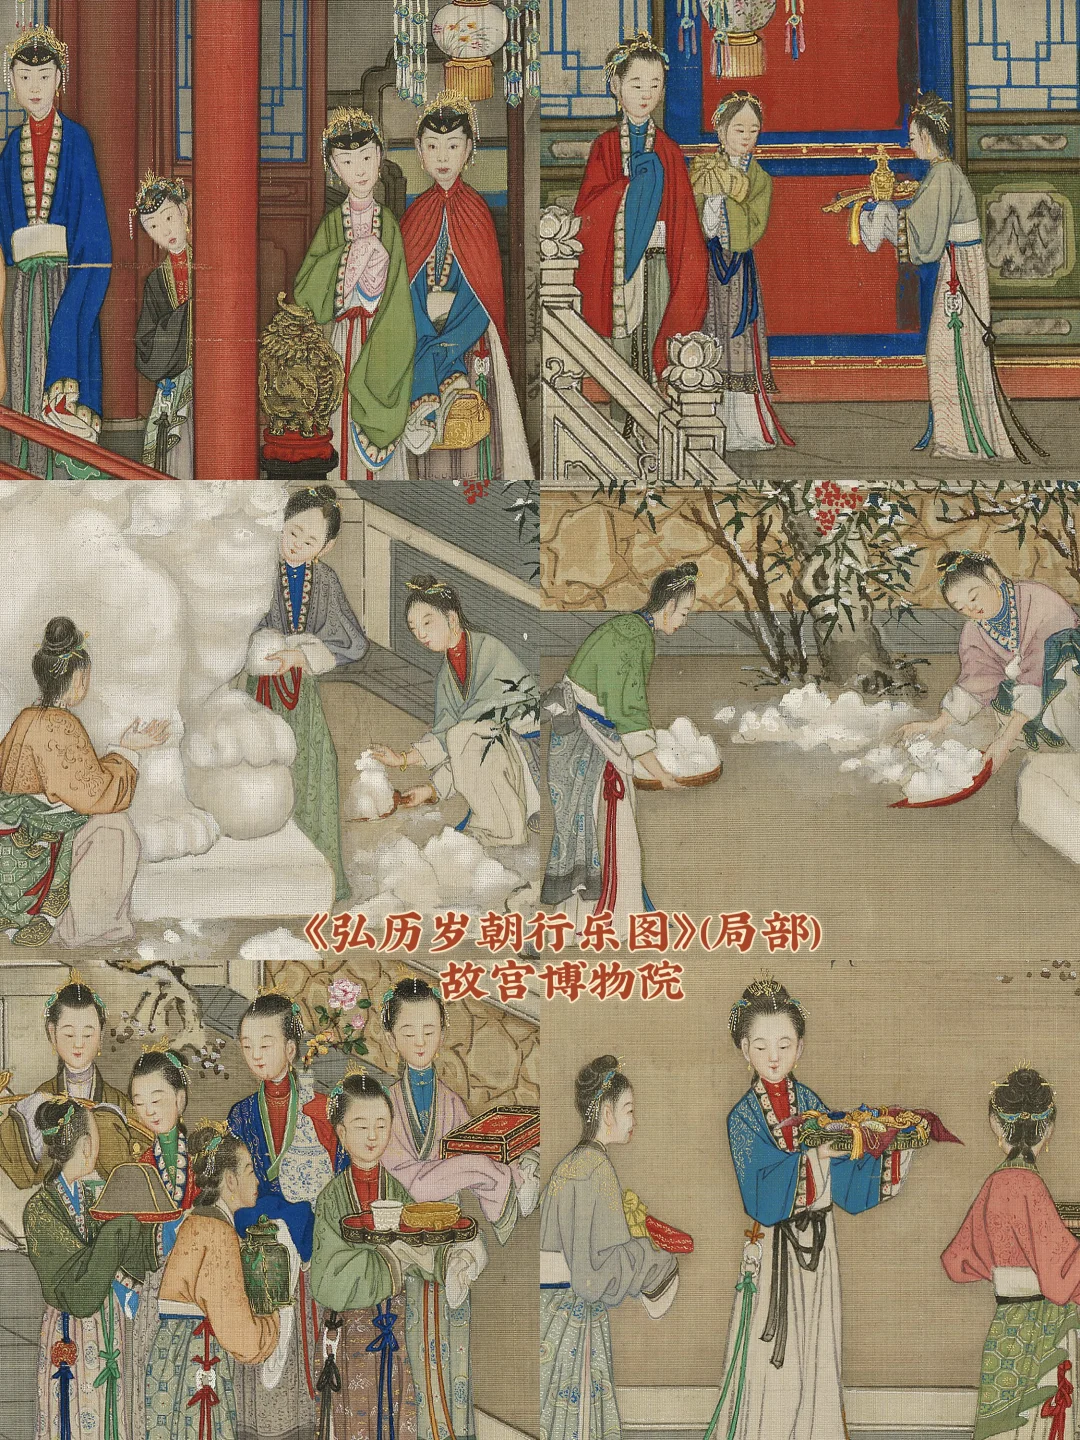 《弘历岁朝行乐图》(局部)
故宫博物院